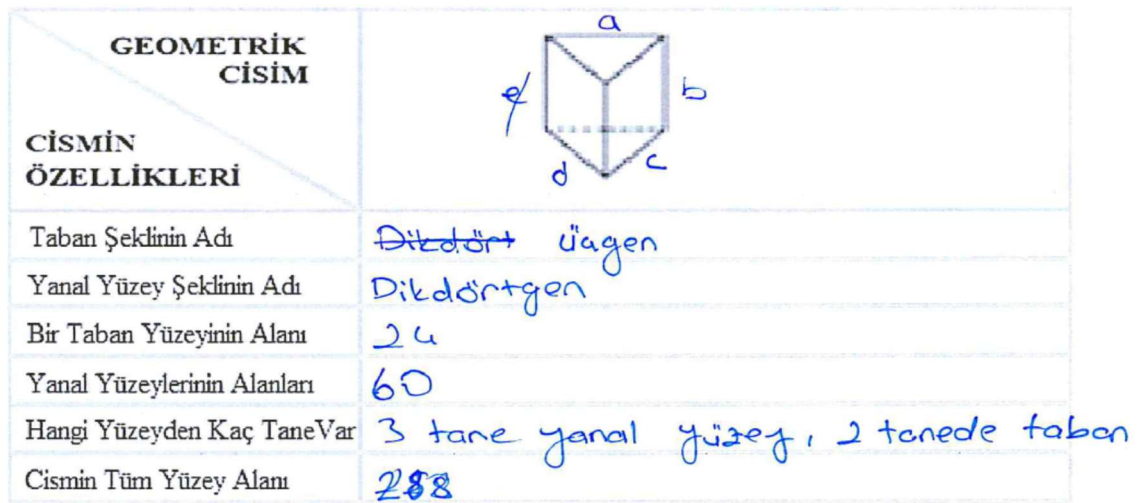 GEOMETRİK
CİSİM
CİSMİN
ÖZELLİKLERİ
a
e
b
d
c
Taban Şeklinin Adı Dikdört üçgen
Yanal Yüzey Şeklinin Adı Dikdörtgen
Bir Taban Yüzeyinin Alanı 24
Yanal Yüzeylerinin Alanları 60
Hangi Yüzeyden Kaç TaneVar 3 tane yanal yüzey, 2 tanede taban
Cismin Tüm Yüzey Alanı